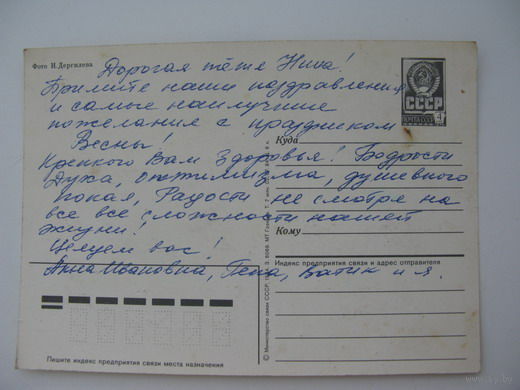 Фото И. Дергилева
Дорогая тётя Нина!
Примите наши поздравления
и самые наилучшие
пожелания с праздником
Весны!
Крепкого Вам Здоровья! Бодрости
Духа, оптимизма, душевного
покоя, Радости не смотря на
все все сложности нашей
жизни!
Целуем вас!
Анна Ивановна, Гена, Вятик и я.
СССР
ПОЧТА СССР
Куда
Кому
Индекс предприятия связи и адрес отправителя
© Министерство связи СССР.
Пишите индекс предприятия связи места назначения